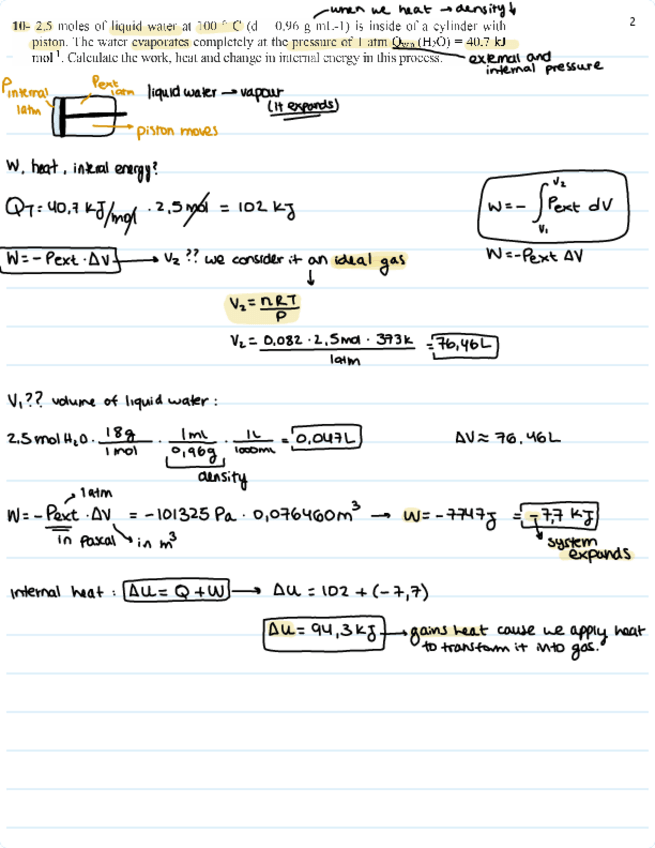 when we heat → density↓
2
10- 2,5 moles of liquid water at 100 ° C (d 0,96 g mL-1) is inside of a cylinder with
piston. The water evaporates completely at the pressure of 1 atm Qvap (H₂O) = 40.7 kJ
mol⁻¹. Calculate the work, heat and change in internal energy in this process.
external and
internal pressure
Pinternal
1atm
Pext
1atm
liquid water → vapour
(It expands)
piston moves
W, heat, internal energy?
QT = 40,7 kJ/mol · 2,5 mol = 102 kJ
W = - ∫ Pext dV
V₂
V₁
W = - Pext · ΔV → V₂ ?? we consider it an ideal gas
W = - Pext ΔV
V₂ = nRT / P
V₂ = 0,082 · 2,5 mol · 373 K / 1atm = 76,46L
V₁ ?? volume of liquid water :
2,5 mol H₂O · 18g / 1 mol · 1mL / 0,96g · 1L / 1000mL = 0,047L
ΔV ≈ 76,46L
density
1 atm
W = - Pext · ΔV = -101325 Pa · 0,076460 m³ → W = -7747 J = -7,7 kJ
in Pascal in m³
system
expands
internal heat : ΔU = Q + W → ΔU = 102 + (-7,7)
ΔU = 94,3 kJ → gains heat cause we apply heat
to transform it into gas.